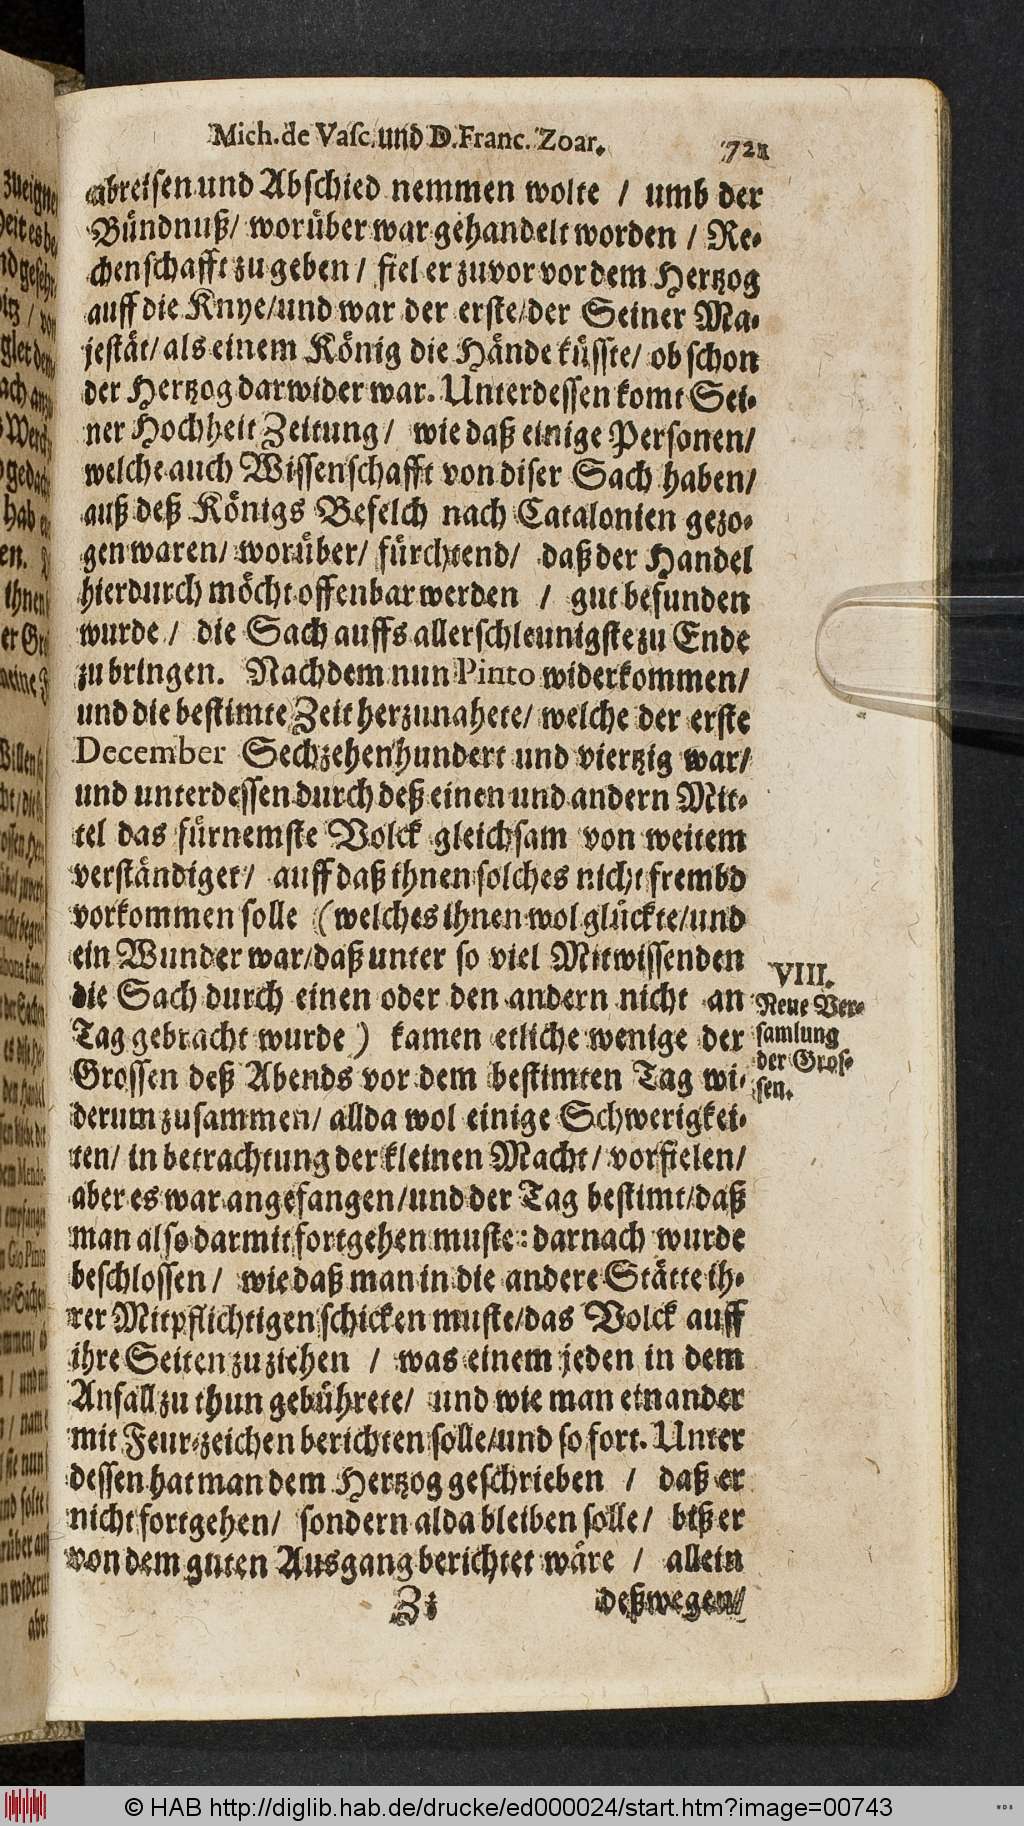 Mich. de Vasc. und D. Franc. Zoar. 721
abreisen und Abschied nemmen wolte / umb der
Bündnuß / worüber war gehandelt worden / Re-
chenschafft zu geben / fiel er zuvor vor dem Hertzog
auff die Knye / und war der erste / der Seiner Ma-
jestät / als einem König die Hände küsste / ob schon
der Hertzog darwider war. Unterdessen komt Sei-
ner Hochheit Zeitung / wie daß einige Personen /
welche auch Wissenschafft von diser Sach haben /
auß deß Königs Befelch nach Catalonien gezo-
gen waren / worüber / fürchtend / daß der Handel
hierdurch möcht offenbar werden / gut befunden
wurde / die Sach auffs allerschleunigste zu Ende
zu bringen. Nachdem nun Pinto widerkommen /
und die bestimte Zeit herzunahete / welche der erste
December Sechzehenhundert und viertzig war /
und unterdessen durch deß einen und andern Mit-
tel das fürnemste Volck gleichsam von weitem
verständiget / auff daß ihnen solches nicht frembd
vorkommen solle (welches ihnen wol glückte / und
ein Wunder war / daß unter so viel Mitwissenden
die Sach durch einen oder den andern nicht an
Tag gebracht wurde) kamen etliche wenige der
Grossen deß Abends vor dem bestimten Tag wi-
derum zusammen / allda wol einige Schwerigkei-
ten / in betrachtung der kleinen Macht / vorfielen /
aber es war angefangen / und der Tag bestimt / daß
man also darmit fortgehen muste : darnach wurde
beschlossen / wie daß man in die andere Stätte ih-
rer Mitpflichtigen schicken muste / das Volck auff
ihre Seiten zu ziehen / was einem jeden in dem
Anfall zu thun gebührete / und wie man einander
mit Feur-zeichen berichten solle / und so fort. Unter
dessen hat man dem Hertzog geschrieben / daß er
nicht fortgehen / sondern alda bleiben solle / biß er
von dem guten Ausgang berichtet wäre / allein
Z i deßwegen /
VIII.
Neue Ver-
samlung
der Gros-
sen.
© HAB http://diglib.hab.de/drucke/ed000024/start.htm?image=00743